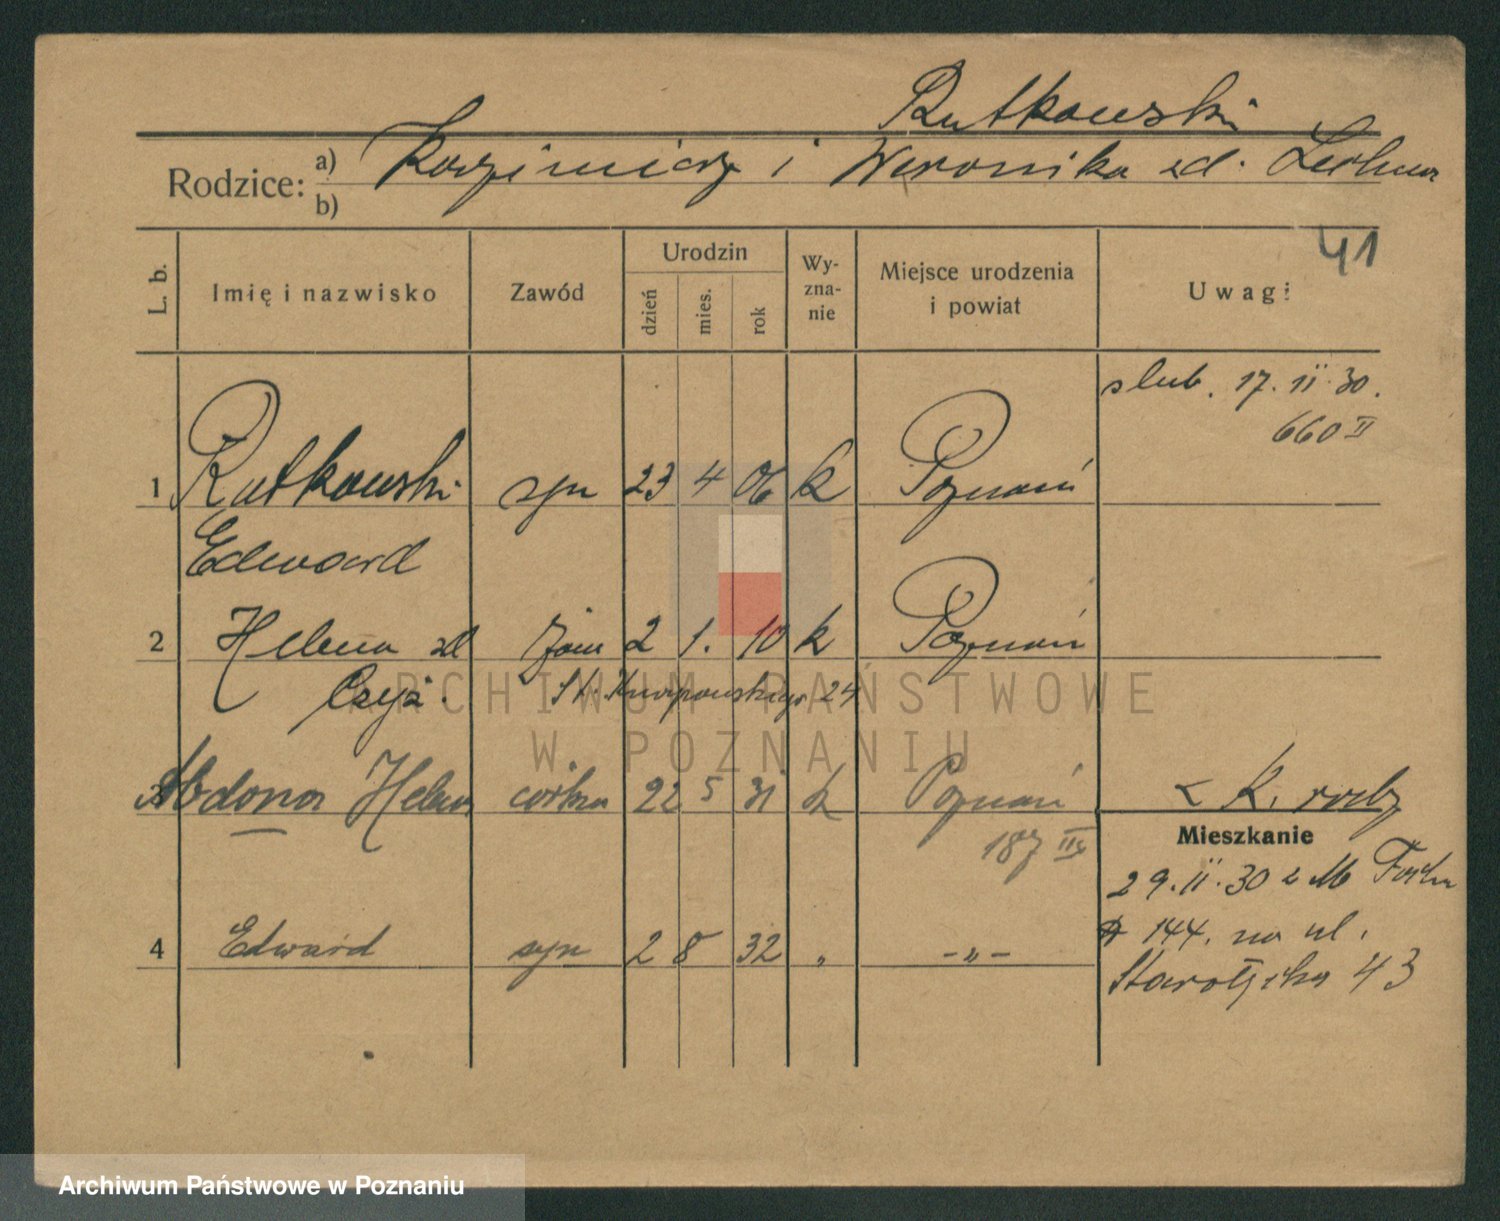 Rutkowski
Rodzice: a) Kazimierz i Weronika zd.
b)
41
L. b. Imię i nazwisko Zawód Urodzin dzień mies. rok Wyznanie Miejsce urodzenia i powiat Uwagi
slub. 17. II. 30.
660 II
1 Rutkowski syn 23 4 06 k Poznań
Edward
2 Helena zd żona 2 1. 10 k Poznań
Czyż. 24
ARCHIWUM PAŃSTWOWE
W POZNANIU
Abdona Helena córka 22 5 31 k Poznań
K.
187
Mieszkanie
29. II. 30 z M Focha
144. na ul.
4 Edward syn 2 8 32 „ -„-
Starołęcka 43
Archiwum Państwowe w Poznaniu